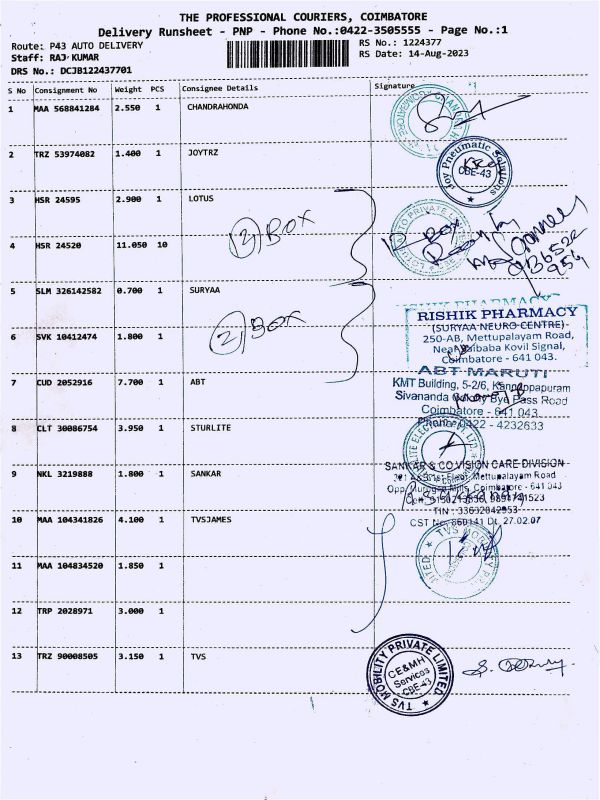 THE PROFESSIONAL COURIERS, COIMBATORE
Delivery Runsheet - PNP - Phone No.:0422-3505555 - Page No.:1
Route: P43 AUTO DELIVERY
RS No.: 1224377
Staff: RAJ KUMAR
RS Date: 14-Aug-2023
DRS No.: DCJB122437701
S No Consignment No Weight PCS Consignee Details Signature
1 MAA 568841284 2.550 1 CHANDRAHONDA
2 TRZ 53974082 1.400 1 JOYTRZ
Joy Pneumatic Solutions
CBE-43
3 HSR 24595 2.900 1 LOTUS
12) Box
4 HSR 24520 11.050 10
5 SLM 326142582 0.700 1 SURYAA
2) Box
RISHIK PHARMACY
RISHIK PHARMACY
(SURYAA NEURO CENTRE)
250-AB, Mettupalayam Road,
Near Saibaba Kovil Signal,
Coimbatore - 641 043.
6 SVK 10412474 1.800 1
7 CUD 2052916 7.700 1 ABT
ABT MARUTI
KMT Building, 5-2/6, Kannappapuram
Sivananda Colony Bye Pass Road
Coimbatore - 641 043
Phone: 0422 - 4232633
8 CLT 30086754 3.950 1 STURLITE
9 NKL 3219888 1.800 1 SANKAR
SANKAR & CO VISION CARE DIVISION
Mettupalayam Road
Coimbatore - 641 043
TIN : 33602042953
CST No. 860141 Dt. 27.02.07
10 MAA 104341826 4.100 1 TVSJAMES
TVS MOBILITY
11 MAA 104834520 1.850 1
12 TRP 2028971 3.000 1
13 TRZ 90008505 3.150 1 TVS
TVS MOBILITY PRIVATE LIMITED
CE&MH
Services
CBE-43